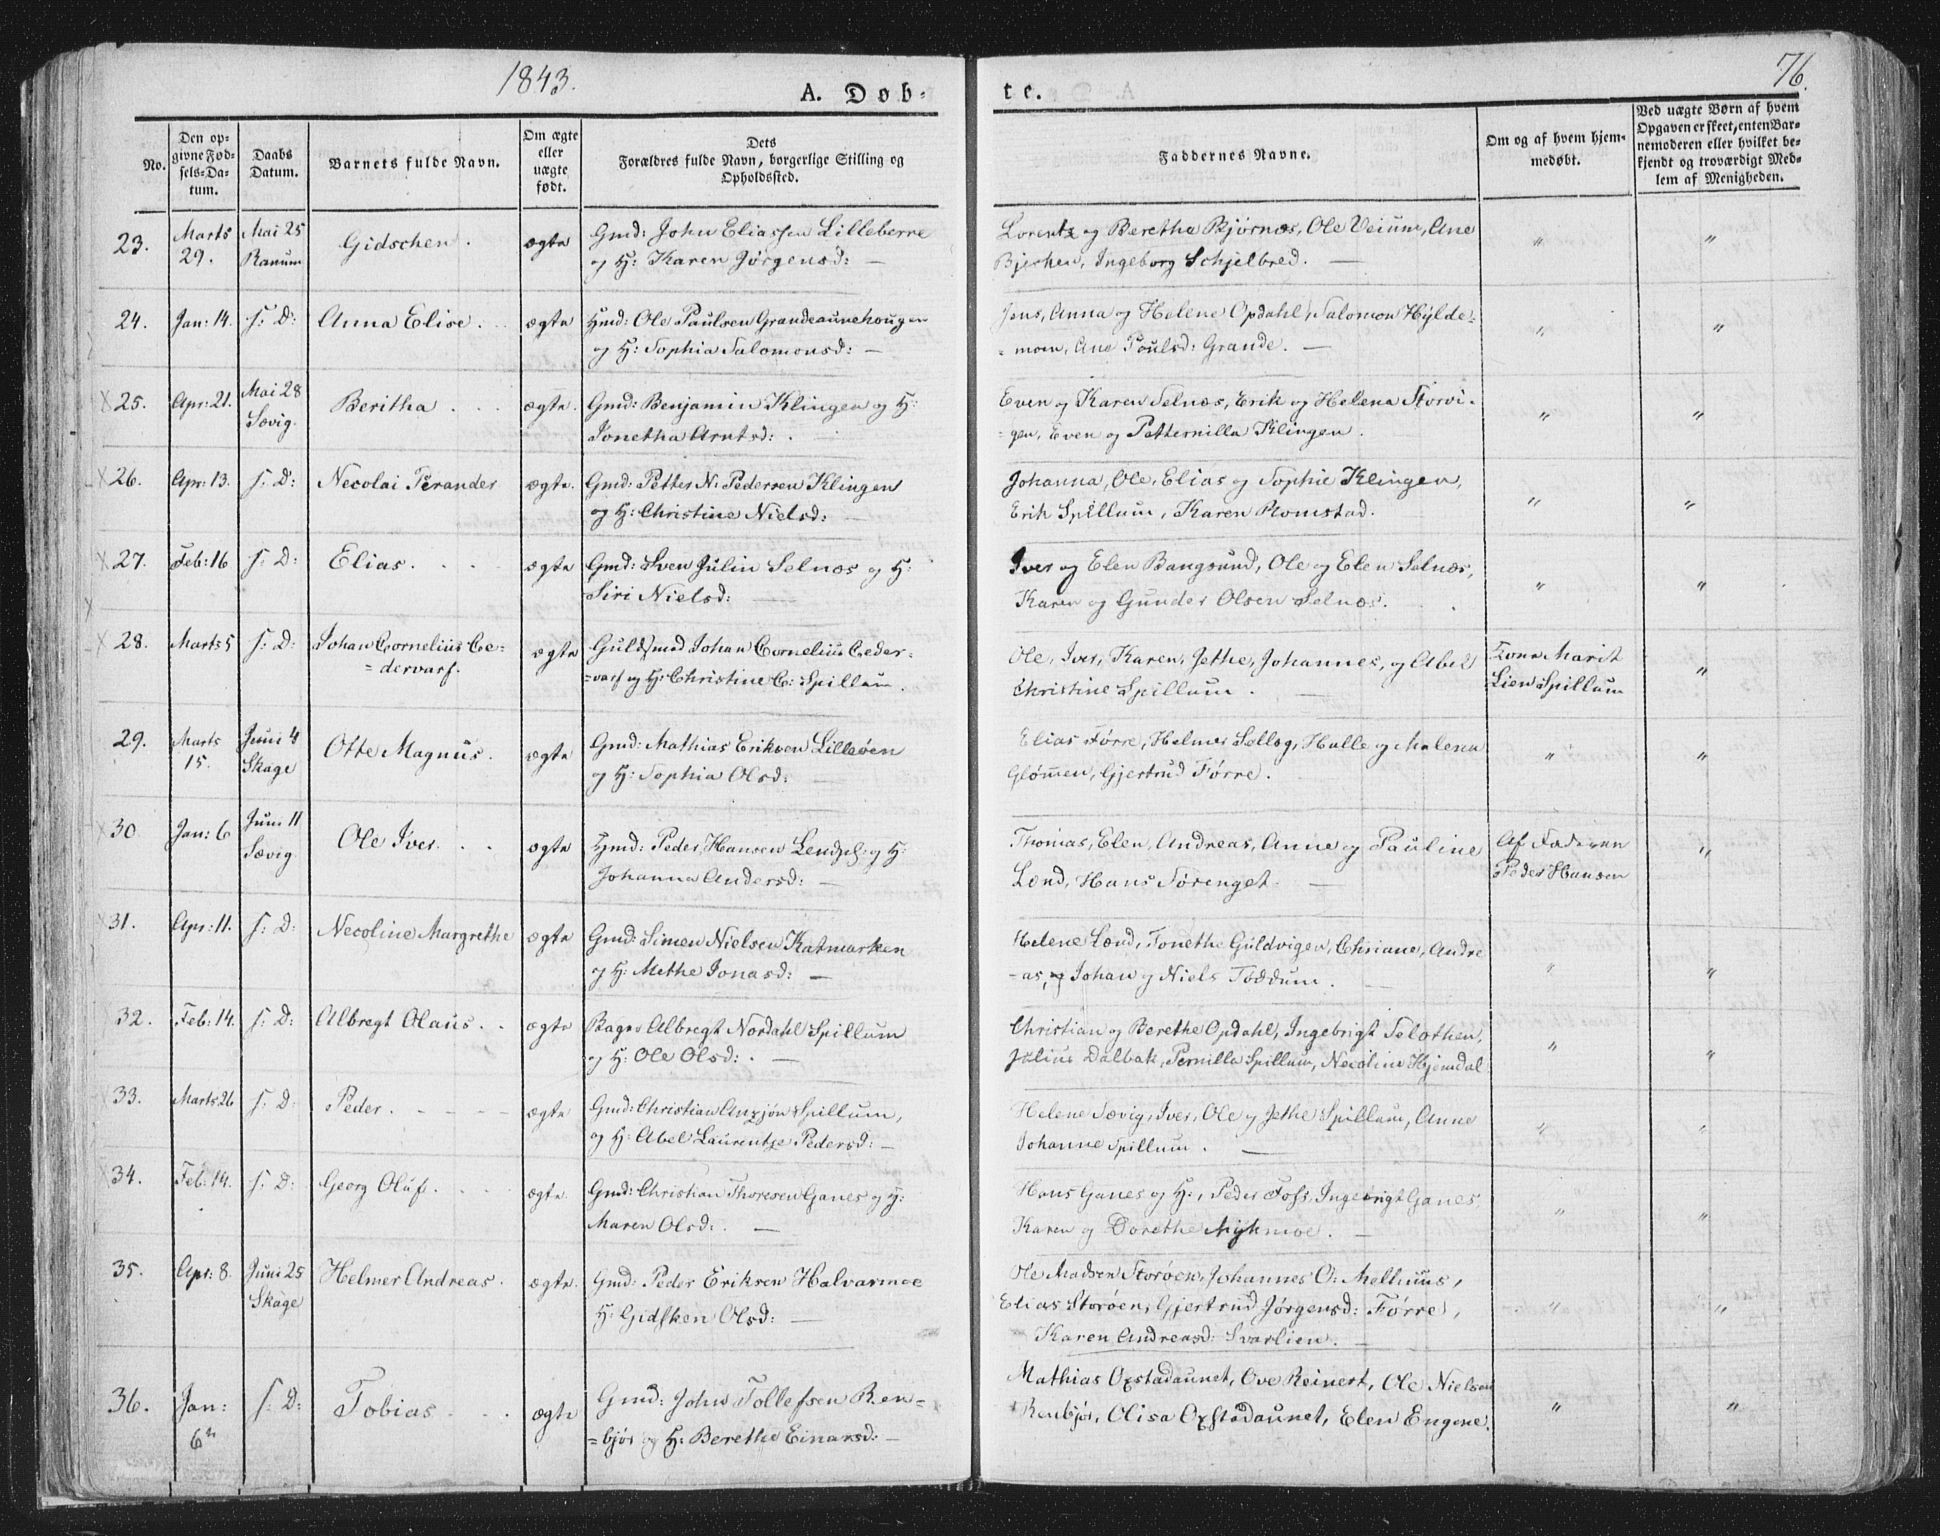 1843.
76.
A. Døb-
te.
No.
Den op-
givne Fød-
sels-Da-
tum.
Daabs
Datum.
Barnets fulde Navn.
Om ægte
eller
uægte
født.
Dets
Forældres fulde Navn, borgerlige Stilling og
Opholdssted.
Faddernes Navne.
Om og af hvem hjem-
medøbt.
Ved uægte Børn af hvem
Opgaven er skeet, enten Bar-
nemoderen eller hvilket be-
kjendt og troværdigt Med-
lem af Menigheden.
23. Marts 29. Mai 25 Ranum Gidschen. ægte
Gmd: John Eliassen Lilleberre
og H: Karen Jørgensd: —
Lorentz og Beretha Bjørnes, Ole Veium, Ane
Bjerken, Ingeborg Schjelbred. —
" "
24. Jan: 14. s: D: Anna Elise. ægte
Hmd: Ole Paulsen Grandeaunehougen
og H: Sophia Salomonsd: —
Jens, Anna og Helene Opdahl, Salomon Hylde-
-moen, Ane Poulsd: Grande. —
" "
25. Apr: 21. Mai 28 Sævig. Beritha ægte.
Gmd: Benjamin Klingen og H:
Jonetha Arntsd: .
Even og Karen Selnæs, Erik og Helena Storvi-
-gen, Even og Petternilla Klingen.
" "
26. Apr: 13. s: D: Necolai Perander ægte.
Gmd: Petter N: Pedersen Klingen
og H: Christine Nielsd: —
Johanna, Ole, Elias og Sophie Klingen,
Erik Spillum, Karen Romstad.
" "
27. Feb: 16 s: D: Elias. ægte
Gmd: Sven Julin Selnæs og H:
Siri Nielsd: —
Iver og Elen Bangsund, Ole og Elen Selnæs,
Karen og Gunder Olsen Selnæs.
" "
28. Marts 5 s: D: Johan Cornelius Ce-
=dervarf. ægte
Guldsmed Johan Cornelius Ceder-
=varf og H: Christine C: Spillum.
Ole, Iver, Karen, Jethe, Johannes, og Abel
Christine Spillum. —
Kona Marit
Lien Spillum
"
29. Marts 15. Juni 4 Skage Otte Magnus. ægte
Gmd: Mathias Eriksen Lilleøen
og H: Sophia Olsd: —
Elias Førre, Helmer Selløg, Halle og Malena
Glømen, Gjertrud Førre.
" "
30. Jan: 6 Juni 11 Sævig Ole Iver. ægte
Hmd: Peder Hansen og H:
Johanna Andersd: —
Thomas, Elen, Andreas, Anne og Pauline
Lænd, Hans Sørenget. —
Af Faderen
Peder Hansen
"
31. Apr: 11. s: D: Necoline Margrethe ægte
Gmd: Simen Nielsen Katmarken
og H: Methe Jonasd: —
Helene Lænd, Jonethe Guldvigen, Chriane, Andre
-as, og Johan og Niels Tøddum.
" "
32. Feb: 14. s: D: Albregt Olaus. ægte
Albregt Nordahl Spillum
og H: Ole Olsd: . —
Christian og Berethe Opdahl, Ingebrigt Selothen,
Julius Dalbak, Pernilla Spillum, Necoline Hjemdal
" "
33. Marts 26 s: D: Peder. ægte
Gmd: Christian Anzjøn Spillum,
og H: Abel Laurentze Pedersd: —
Helene Sævig, Iver, Ole og Jethe Spillum, Anne
Johanne Spillum. —
" "
34. Feb: 14. s: D: Georg Oluf. ægte.
Gmd: Christian Thoresen Ganes og H:
Maren Olsd: . —
Hans Ganes og H:, Peder Foss, Ingebrigt Ganes
Karen og Dorethe Mykmoe. —
" "
35. Apr: 8. Juni 25 Skage Helmer Andreas. ægte.
Gmd: Peder Eriksen Halvarmoe
H: Gidsken Olsd: —
Ole Madsen Storøen, Johannes O: Melhuus,
Elias Storøen, Gjertrud Jørgensd: Førre,
Karen Andreasd: Svarlien. —
" "
36. Jan: 6te s: D: Tobias ægte
Gmd: John Tollefsen Ren-
=bjør og H: Berethe Einarsd: —
Mathias Oxstadaunet, Ove Reinert, Ole Nielsen
Renbjør, Olisa Oxstadaunet, Elen Engene.
" "